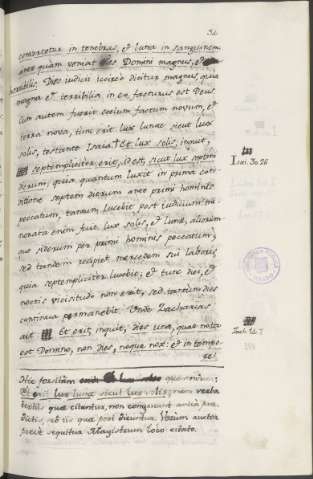 32
convertetur in tenebras, et luna in sanguinem
ante quam veniat dies Domini magnus, et
horribilis. Dies iudicii iccirco dicitur magnus, quia
magna et terribilia in ea facturus est Deus.
Cum autem fuerit coelum factum novum, et
terra nova, tunc erit lux lunae sicut lux
solis, testante Isaia. Et lux solis, inquit,
septempliciter erit, id est, sicut lux septem
dierum, quia quantum luxit in prima con-
ditione septem dierum ante primi hominis
peccatum, tantum lucebit post iudicium. Mi-
norata enim fuit lux solis, et lunae, aliorum-
que siderum per primi hominis peccatum,
sed tandem recipiet mercedem sui laboris
quia septempliciter lucebit; et tunc diei, et
noctis vicisitudo non erit, sed tantum dies
continua permanebit. Unde Zacharias
ait Et erit, inquit, dies una, quae nota
est Domino, non dies, neque nox: et in tempo-
re
Isai. 30. 26
Zach. 14. 7
Hic forsitan
Et erit lux lunae sicut lux solis; nam verba
textus quae citantur, non congruunt antea prae-
dictis sed iis quae post dicuntur. Verum auctor
sequitur Magistrum loco citato.